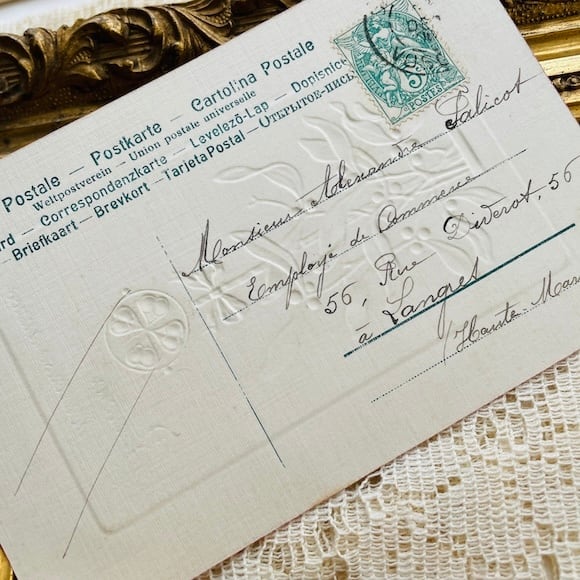 Postale — Postkarte — Cartolina Postale
Weltpostverein — Union postale universelle
ard — Correspondenzkarte — Levelező-Lap — Dopisnice
Briefkaart — Brevkort — Tarjeta Postal — Открытое-пис
POSTES
Monsieur Alexandre Salicot
Employé de Commerce
56, Rue Diderot, 56
à Langres
(Haute Mar